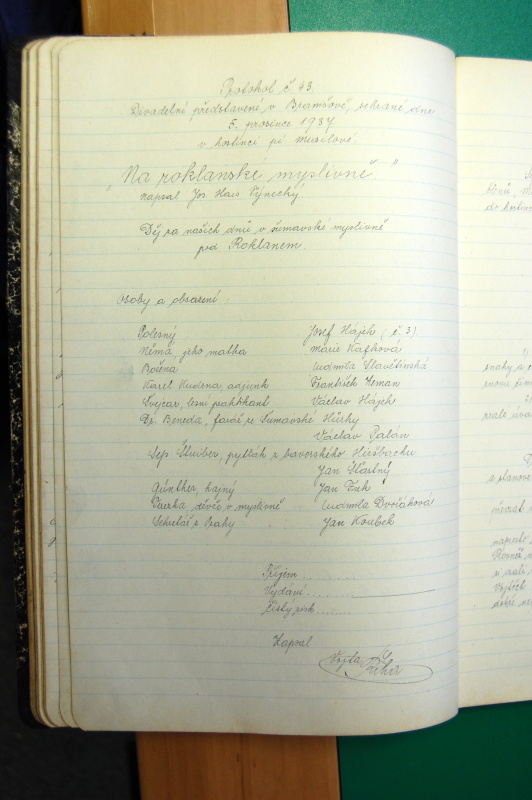 Protokol č. 43.
Divadelní představení v Branšově, sehrané dne
5. prosince 1937
v hostinci pí Musilové.
„Na roklanské myslivně."
napsal Jos. Hais Týnecký.
Děj za našich dnů v šumavské myslivně
pod Roklanem.
Osoby a obsazení:
Polesný Josef Hájek (č. 3)
Němá, jeho matka Marie Kafková
Božena Ludmila Slavětínská
Karel Kudrna adjunkt František Zeman
Švejcar, lesní praktikant Václav Hájek
Dr. Beneda, farář ze Šumavské Hůrky
Václav Palán
Sep. Stuiber, pytlák z bavorského Hiršbachu
Jan Šťastný
Günther, hajný Jan Fuk
děvče v myslivně Ludmila Dvořáková
Sekretář z Prahy Jan Koubek
Příjem
Vydání
Čistý zisk
Napsal
Vojta